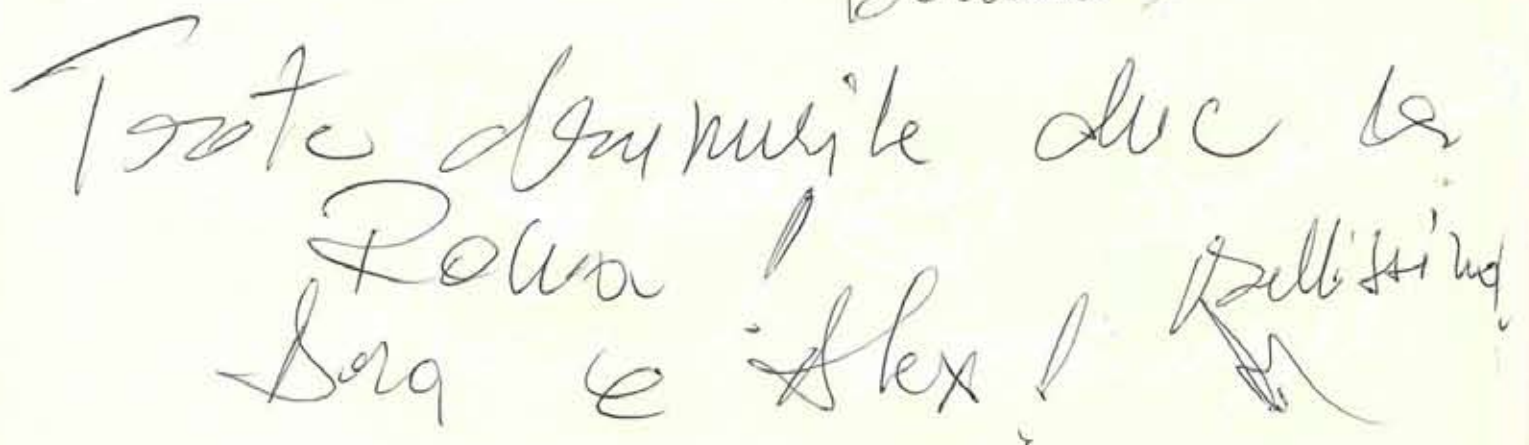 Toate drumurile duc la
Roma! Bellissima
Dora e Alex!